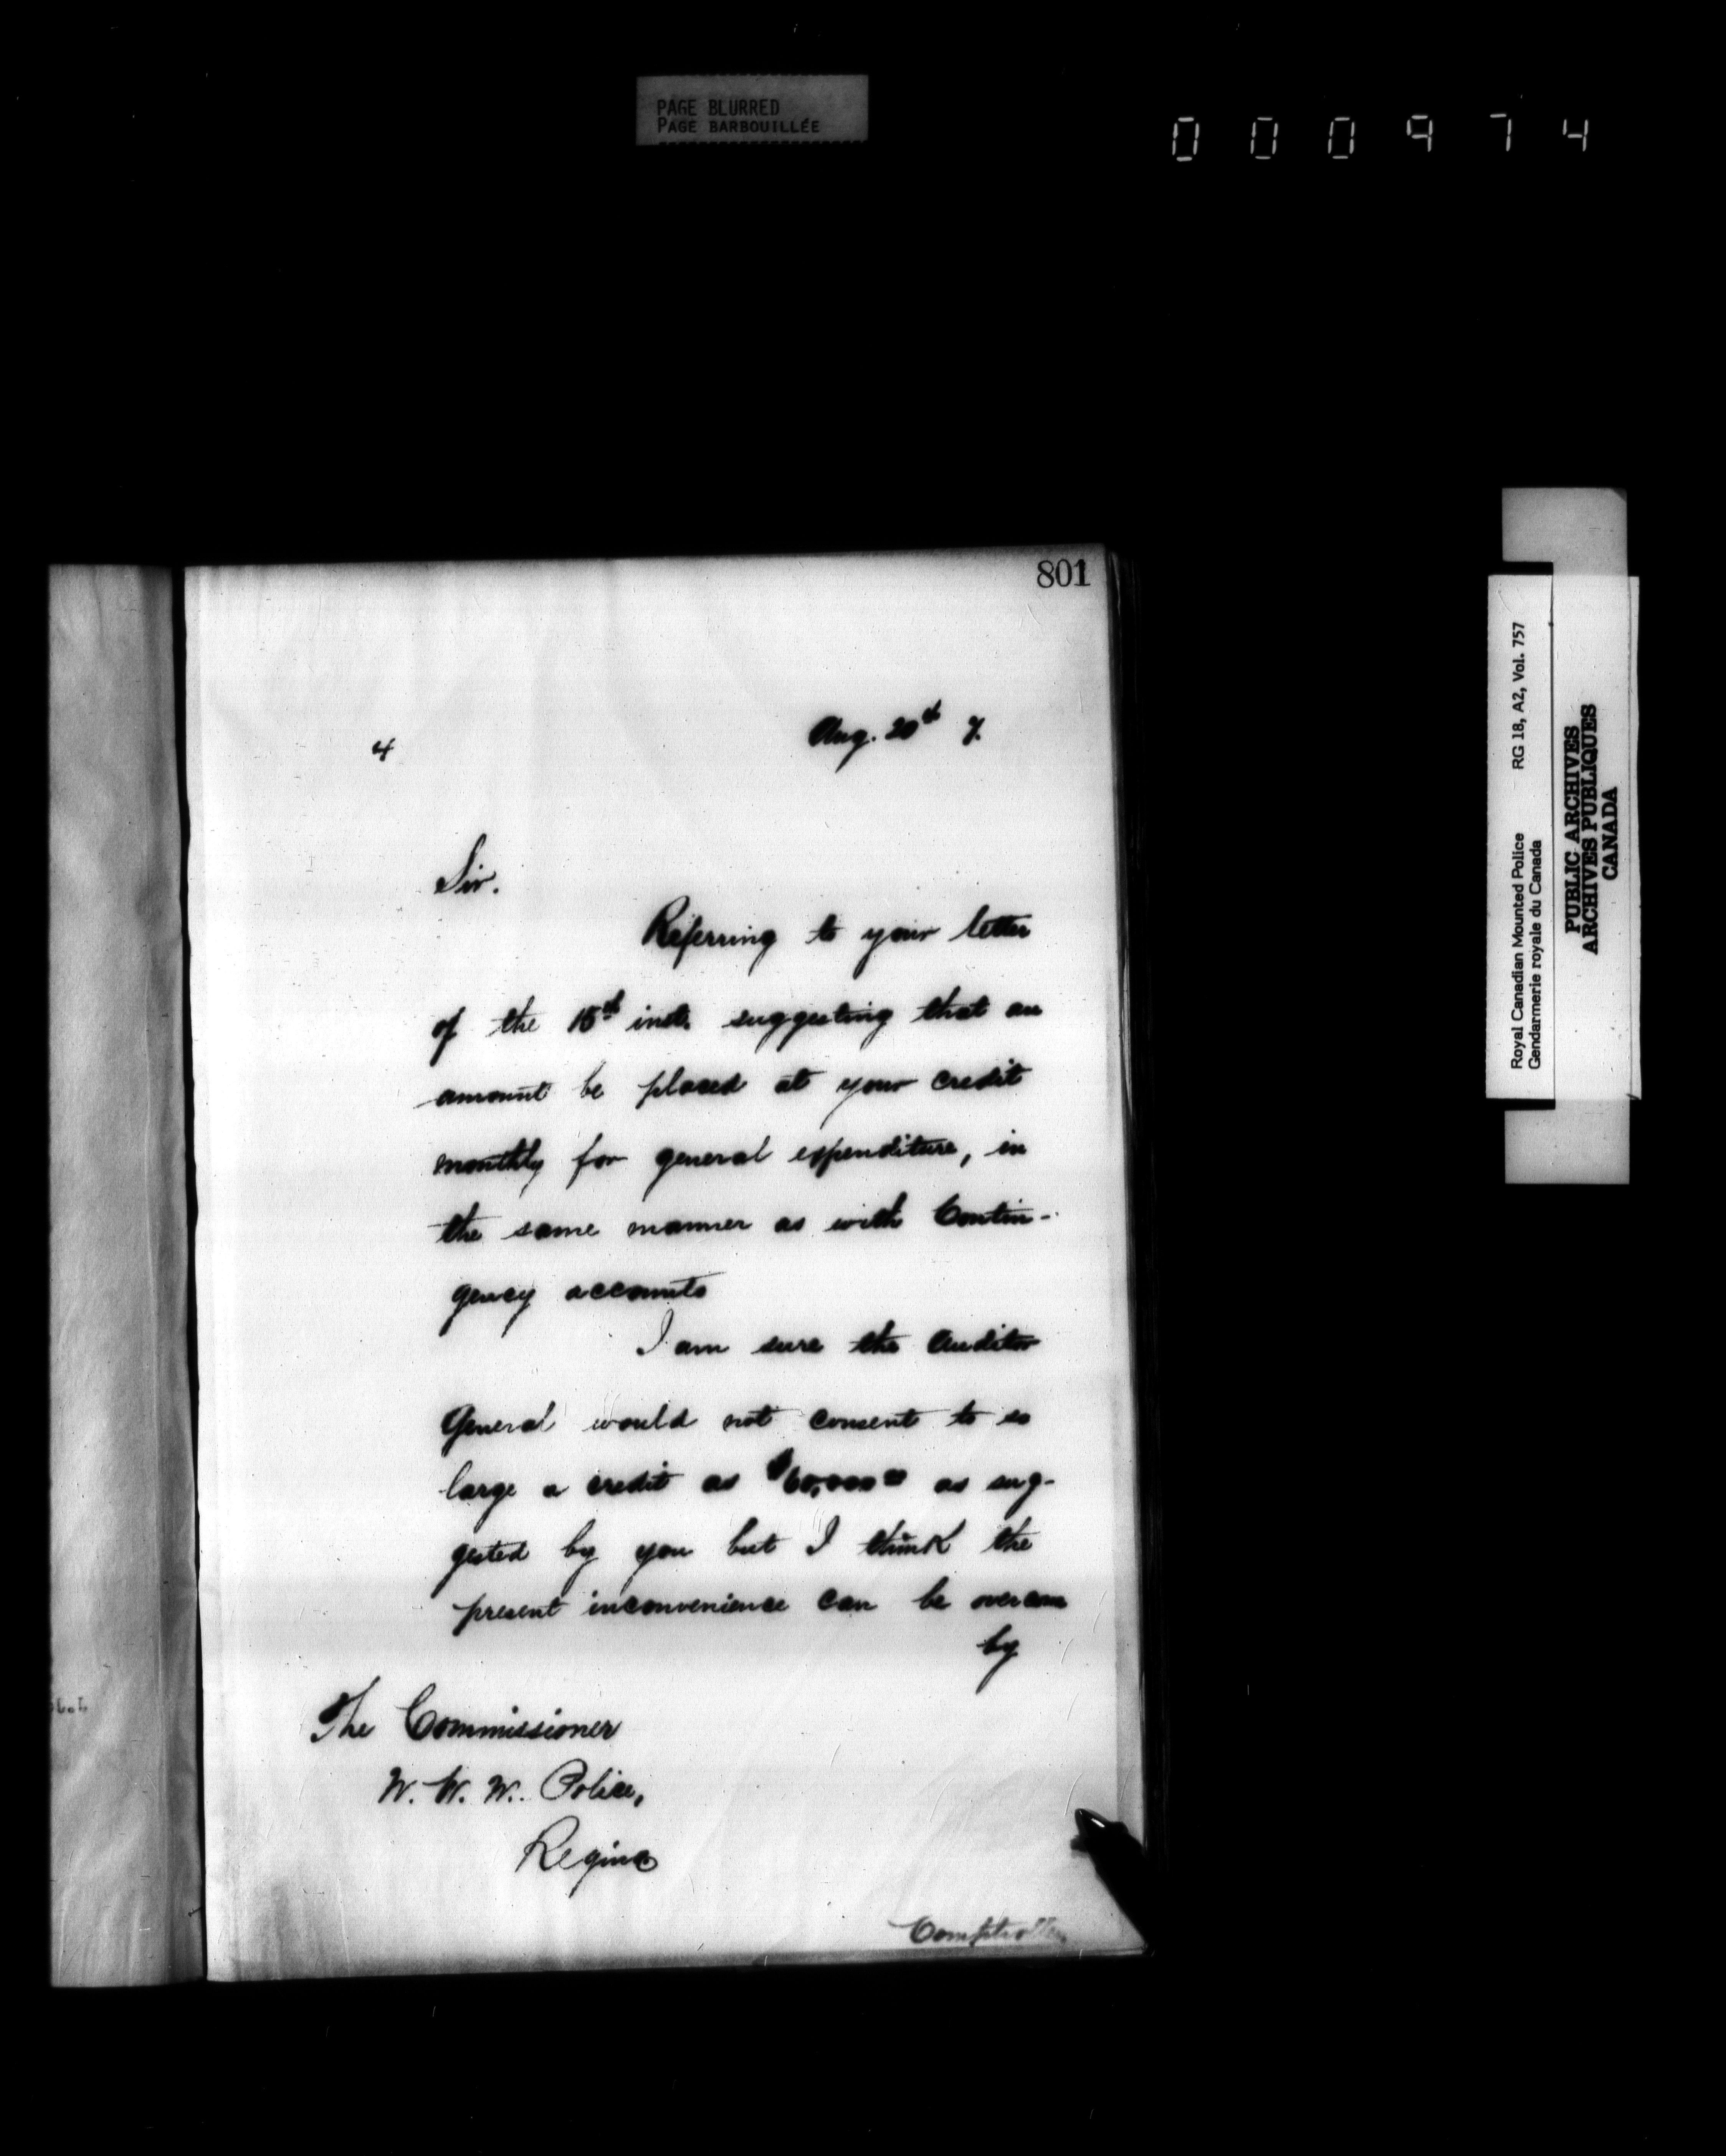 PAGE BLURRED
PAGE BARBOUILLÉE
000974
801
4
Aug. 20th 7.
Sir.
Referring to your letter
of the 15th inst. suggesting that an
amount be placed at your credit
monthly for general expenditure, in
the same manner as with Contin-
gency accounts
I am sure the Auditor
General would not consent to so
large a credit as $60,000 00 as sug-
gested by you but I think the
present inconvenience can be overcome
by
The Commissioner
N. W. M. Police,
Regina
Comptroller
Royal Canadian Mounted Police RG 18, A2, Vol. 757
Gendarmerie royale du Canada
PUBLIC ARCHIVES
ARCHIVES PUBLIQUES
CANADA